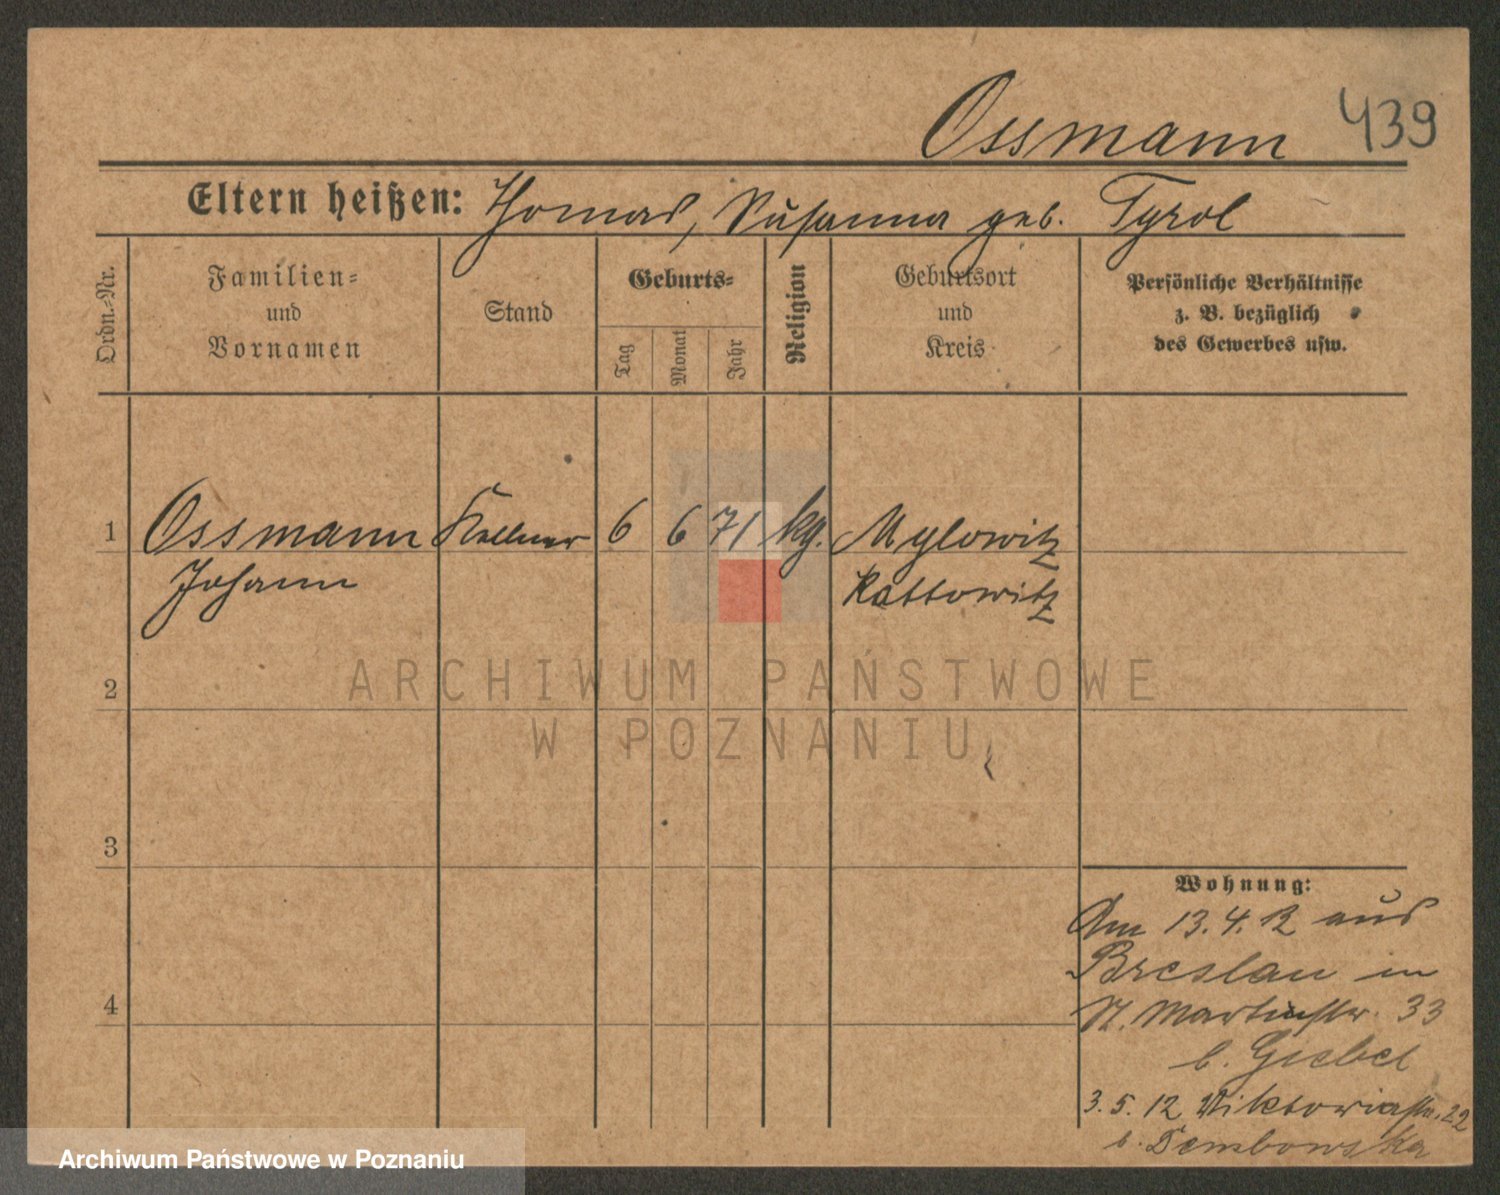 Ossmann 439
Eltern heißen: Thomas, Susanna geb. Tyrol
Ordn.-Nr.
Familien-
und
Vornamen
Stand
Geburts-
Tag
Monat
Jahr
Religion
Geburtsort
und
Kreis
Persönliche Verhältnisse
z. B. bezüglich
des Gewerbes usw.
1 Ossmann Kellner 6 6 71 kg. Mylowitz
Johann Kattowitz
ARCHIWUM PAŃSTWOWE
2
W POZNANIU
3
Wohnung:
Am 13.4.12 aus
Breslau in
St. Martinstr. 33
4
b. Giebel
3. 5. 12 Viktoriastr. 22
b. Dembowska
Archiwum Państwowe w Poznaniu